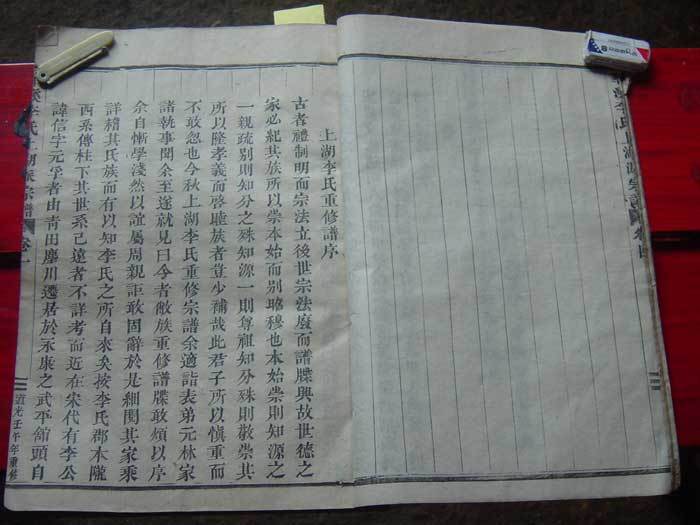 上湖李氏重修譜序
古者禮制明而宗法立後世宗法廢而譜牒興故世德之
家必紀其族所以崇本始而别昭穆也本始崇則知源之
一親疏别則知分之殊知源一則尊祖知分殊則敬崇其
所以隆孝義而啓睦族者豈少補哉此君子所以慎重而
不敢忽也今秋上湖李氏重修宗譜余適詣表弟元林家
諸執事聞余至遂就見曰今者敝族重修譜牒敢煩以序
余自慚學淺然以誼屬周親詎敢固辭於是細閱其家乘
詳稽其氏族而有以知李氏之所自來矣按李氏郡本隴
西系傳柱下其世系已遠者不詳考而近在宋代有李公
諱信字元孚者由青田塵川遷居於永康之武平舘頭自
溪李氏上湖派宗譜
卷一
道光壬午年重修
溪李氏上湖派宗譜